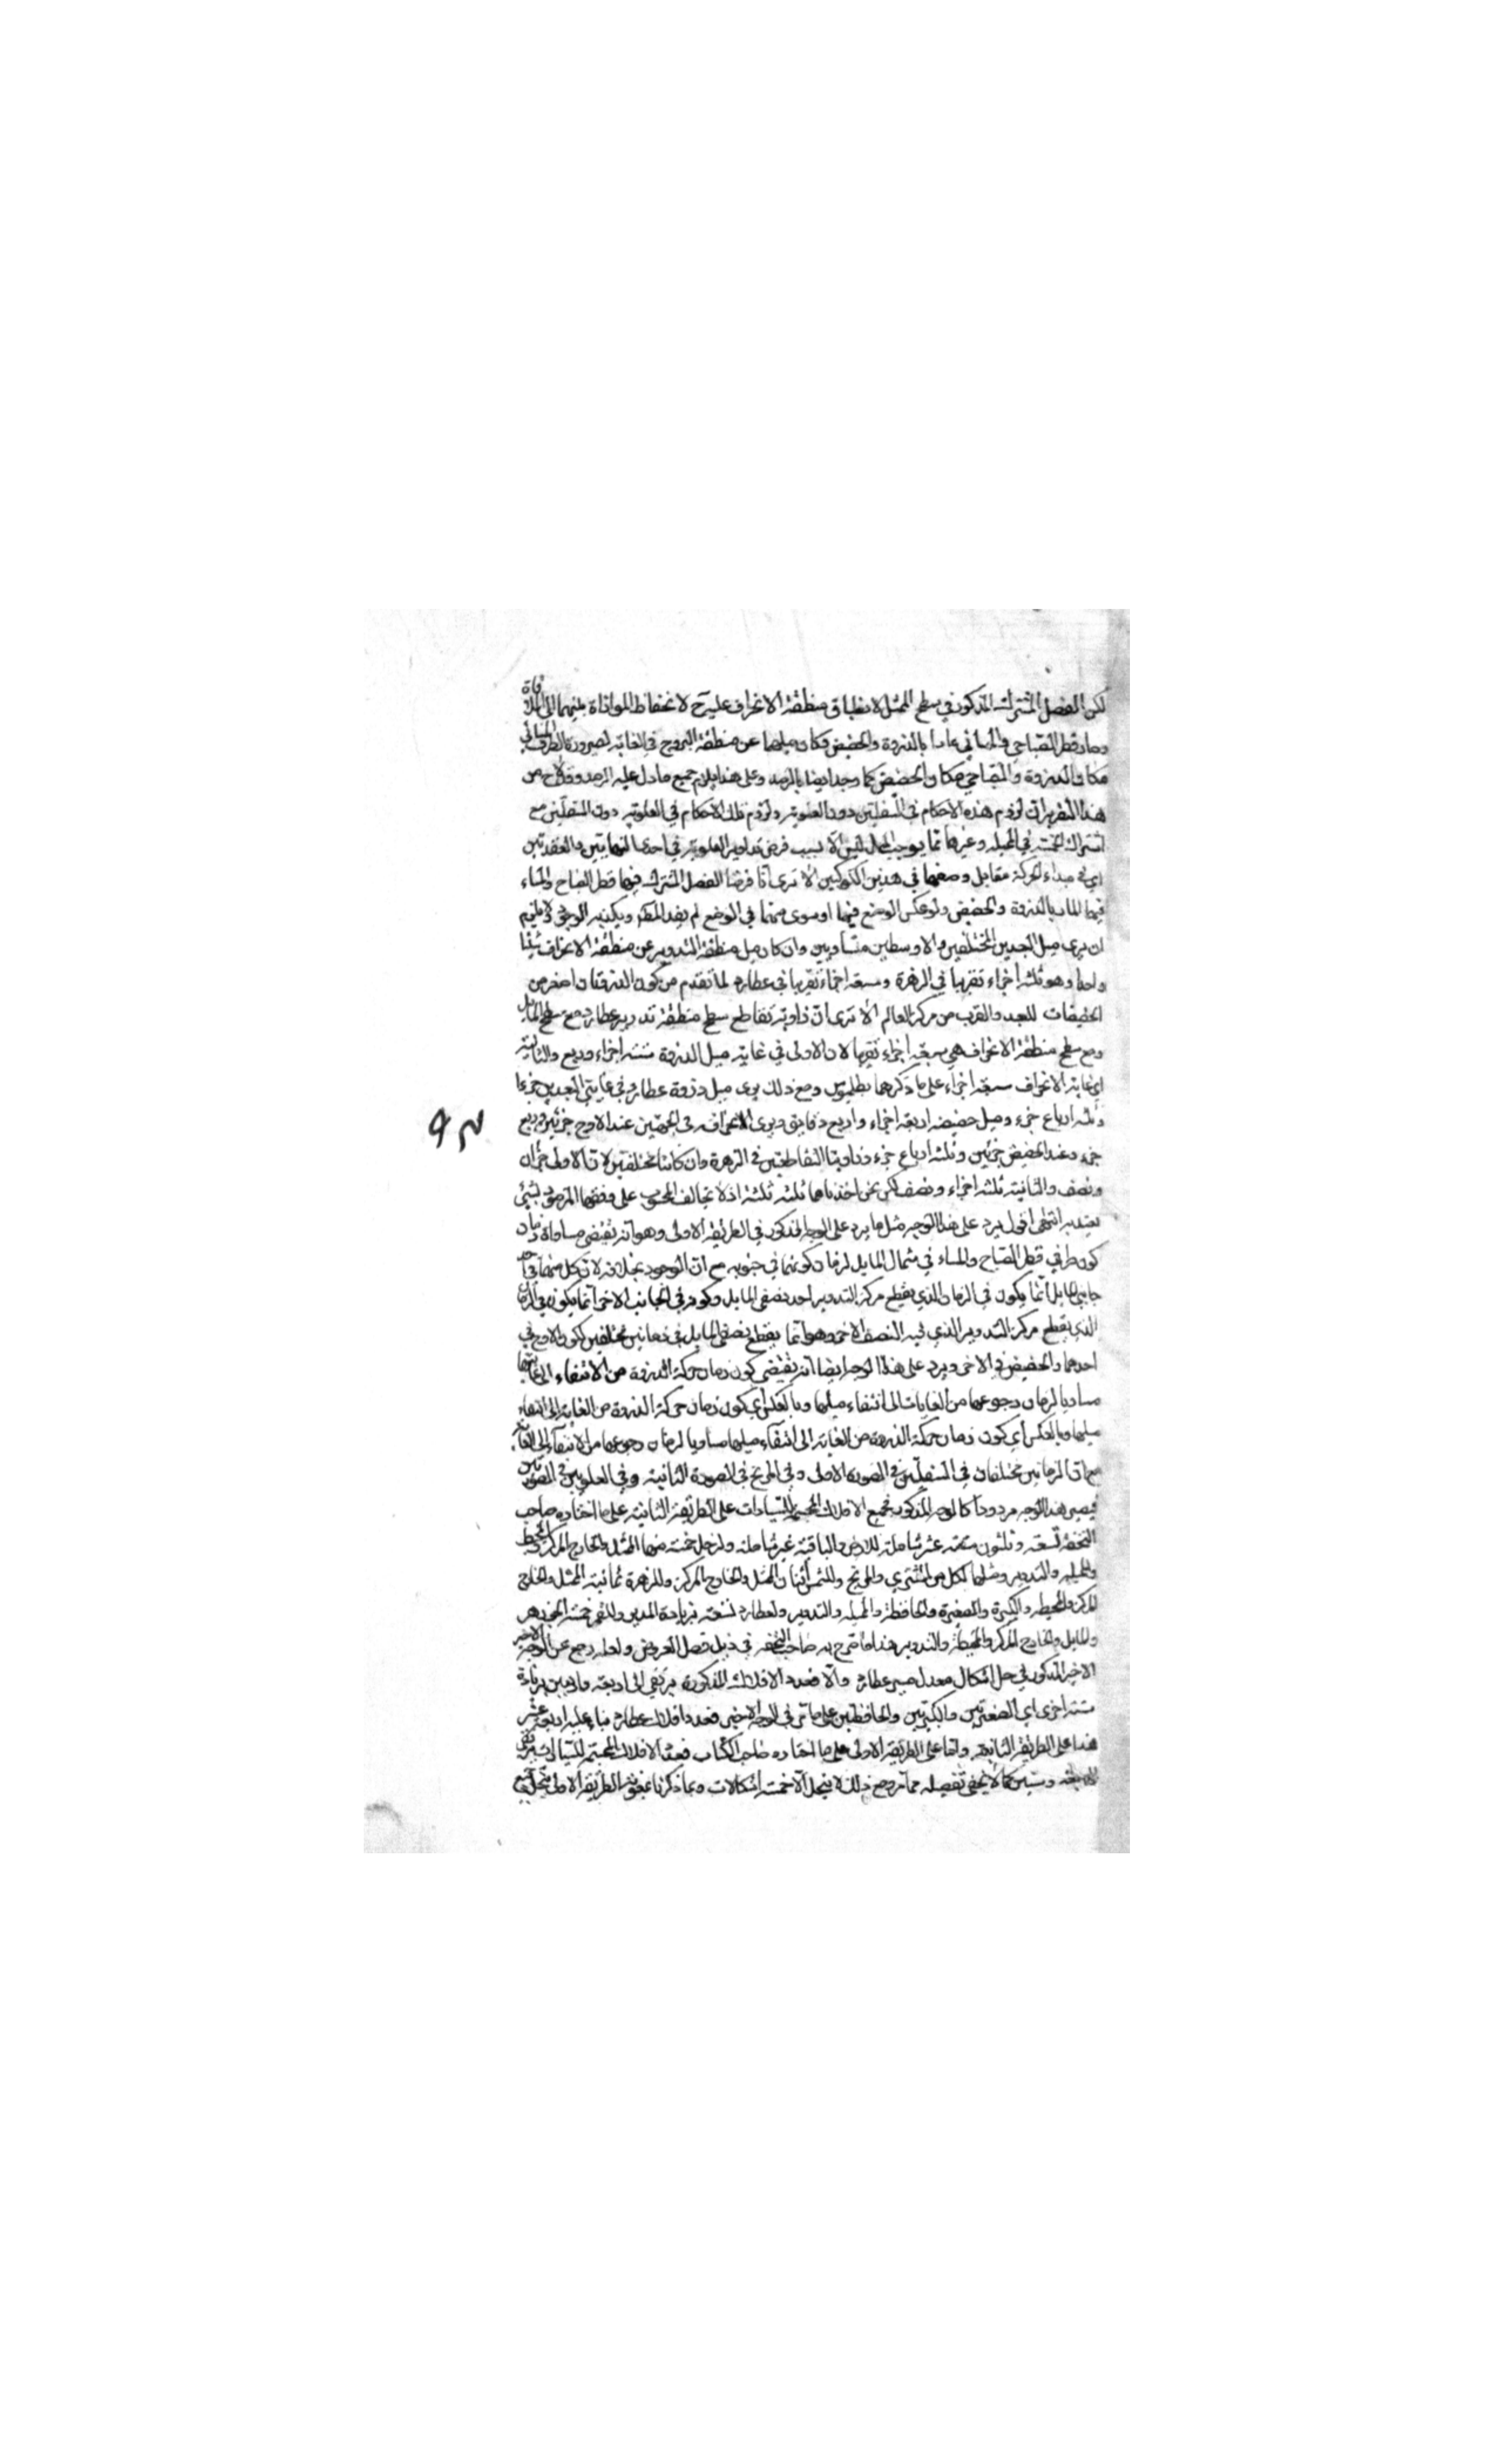 لكن الفصل المشترك المذكور في سطح الممثل لانطباق منطقة الانحراف عليه ح لانحفاظ الموازاة بينهما الى الملاقاة
وصار قطر الصباحي والمسائي مارا بالذروة والحضيض فكان ميلهما عن منطقة البروج في الغاية لصيرورة الطرف المسائي
مكان الذروة والصباحي مكان الحضيض كما وجد ايضا بالرصد وعلى هذا يلزم جميع ما دل عليه الرصد وقد لاح من
هذا التقرير ان لزوم هذه الاحكام في السفليين دون العلوية ولزوم تلك الاحكام في العلوية دون السفليين مع
اشتراك الخمسة في المميلة وغيرها مما يوجب المحال ليس الا بسبب فرض تداوير العلوية في احدى النهايتين والعقدتين
اي في مبداء الحركة مقابل وضعهما في هذين الكوكبين الا ترى انا فرضنا الفصل المشترك فيهما قطر الصباح والمساء
فيهما المار بالذروة والحضيض ولو عكس الوضع فيهما او سوى بينهما في الوضع لم يفد المط ويكذبه الوجود ولا يلزم
ان يرى ميل البعدين المختلفين والاوسطين متساويين وان كان ميل منطقة التدوير عن منطقة الانحراف شيئا
واحدا وهو ثلثة اجزاء تقريبا في الزهرة وسبعة اجزاء تقريبا في عطارد لما تقدم من كون الفرقان اصغر من
الحقيقات للبعد والقرب من مركز العالم الا ترى ان زاوية تقاطع سطح منطقة تدوير عطارد مع سطح المايل
ومع سطح منطقة الانحراف هي سبعة اجزاء تقريبا لان الاولى في غاية ميل الذروة ستة اجزاء وربع والثانية
اي غاية الانحراف سبعة اجزاء على ما ذكرها بطلميوس ومع ذلك يرى ميل ذروة عطارد في غايتي البعدين جزءا
وثلثة ارباع جزء وميل حضيضه اربعة اجزاء واربع دقايق ويرى الانحراف في الجهتين عند الاوج جزئين وربع
جزء وعند الحضيض جزئين وثلثة ارباع جزء وزاويتا التقاطعين في الزهرة وان كانتا مختلفتين لان الاولى جزآن
ونصف والثانية ثلثة اجزاء ونصف لكن نحن اخذناهما ثلثة ثلثة اذ لا تخالف المحسوب على وفقهما المرصود بشئ
يعتد به انتهى اقول يرد على هذا الوجه مثل ما يرد على الوجه المذكور في الطريقة الاولى وهو انه يقتضي مساواة زمان
كون طرفي قطر الصباح والمساء في شمال المايل لزمان كونهما في جنوبه مع ان الوجود بخلافه لان كل منهما في احد
جانبي المايل انما يكون في الزمان الذي يقطع مركز التدوير احد نصفي المايل وكونه في الجانب الاخر انما يكون في الزمان
الذي يقطع مركز التدوير الذي فيه النصف الاخر وهو انما يقطع نصفي المايل في زمانين مختلفين لكون الاوج في
احدهما والحضيض في الاخر ويرد على هذا الوجه ايضا انه يقتضي كون زمان حركة الذروة من الانتفاء الى غايتها
مساويا لزمان رجوعها من الغايات الى انتفاء ميلها وبالعكس اي كون زمان حركة الذروة من الغاية الى انتفاء
ميلها وبالعكس اي كون زمان حركة الذروة من الغاية الى انتفاء ميلها مساويا لزمان رجوعها من الانتفاء الى الغاية
مع ان الزمانين مختلفان في السفليين في الصورة الاولى وفي المريخ في الصورة الثانية وفي العلويين في الصورتين
فيصير هذا الوجه مردودا كالوجه المذكور فجميع الافلاك المجسمة للسيارات على الطريقة الثانية على ما اختاره صاحب
التحفة تسعة وثلثون ستة عشر شاملة للارض والباقية غير شاملة ولزحل خمسة منها الممثل والخارج المركز والمحيط
والمميلة والتدوير ومثلها لكل من المشتري والمريخ وللشمس اثنان الممثل والخارج المركز وللزهرة ثمانية الممثل والخارج
المركز والمحيطة والكبيرة والصغيرة والحافظة والمميلة والتدوير ولعطارد تسعة بزيادة المدير وللقمر خمسة الجوزهر
والمايل والخارج المركز والمحيطة والتدوير هذا ما صرح به صاحب التحفة في ذيل فصل العروض ولعله رجع عن الوجه الاخير
الاخير المذكور في حل اشكال معدل مسير عطارد والا فعدد الافلاك المذكورة يرتقي الى اربعة واربعين بزيادة
ستة اخرى اي الصغيرتين والكبيرتين والحافظتين على ما مر في الوجه الاخير فعدد افلاك عطارد بناء عليه اربعة عشر
هذا على الطريقة الثانية واما على الطريقة الاولى على ما اختاره صاحب الكتاب فعدد الافلاك المجسمة للسيارات يرتقي
الى وستين كما لا يخفى تفصيله مما مر ومع ذلك لا ينحل الا خمسة اشكالات وبما ذكرنا الطريقة الاولى ينحل